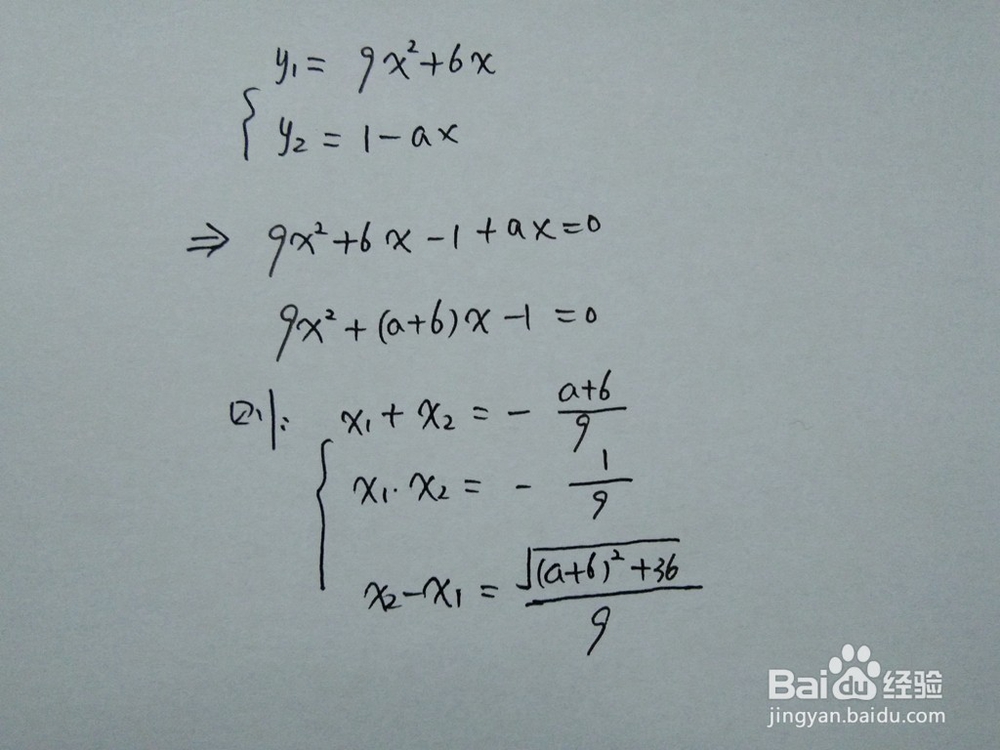 y₁ = 9x²+6x
y₂ = 1-ax
⇒ 9x²+6x-1+ax=0
9x²+(a+6)x-1=0
则: x₁+x₂ = - (a+6)/9
x₁·x₂ = - 1/9
x₂-x₁ = √((a+6)²+36)/9
Baidu经验
jingyan.baidu.com